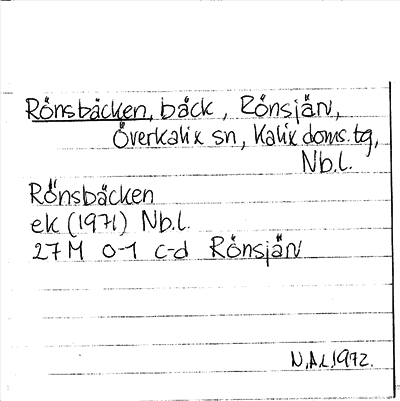 Rönsbäcken, bäck, Rönsjärv,
Överkalix sn, Kalix doms.tg,
Nb.l.
Rönsbäcken
ek (1971) Nb.l.
27 M 0-1 c-d Rönsjärv
N.Å.L 1972.